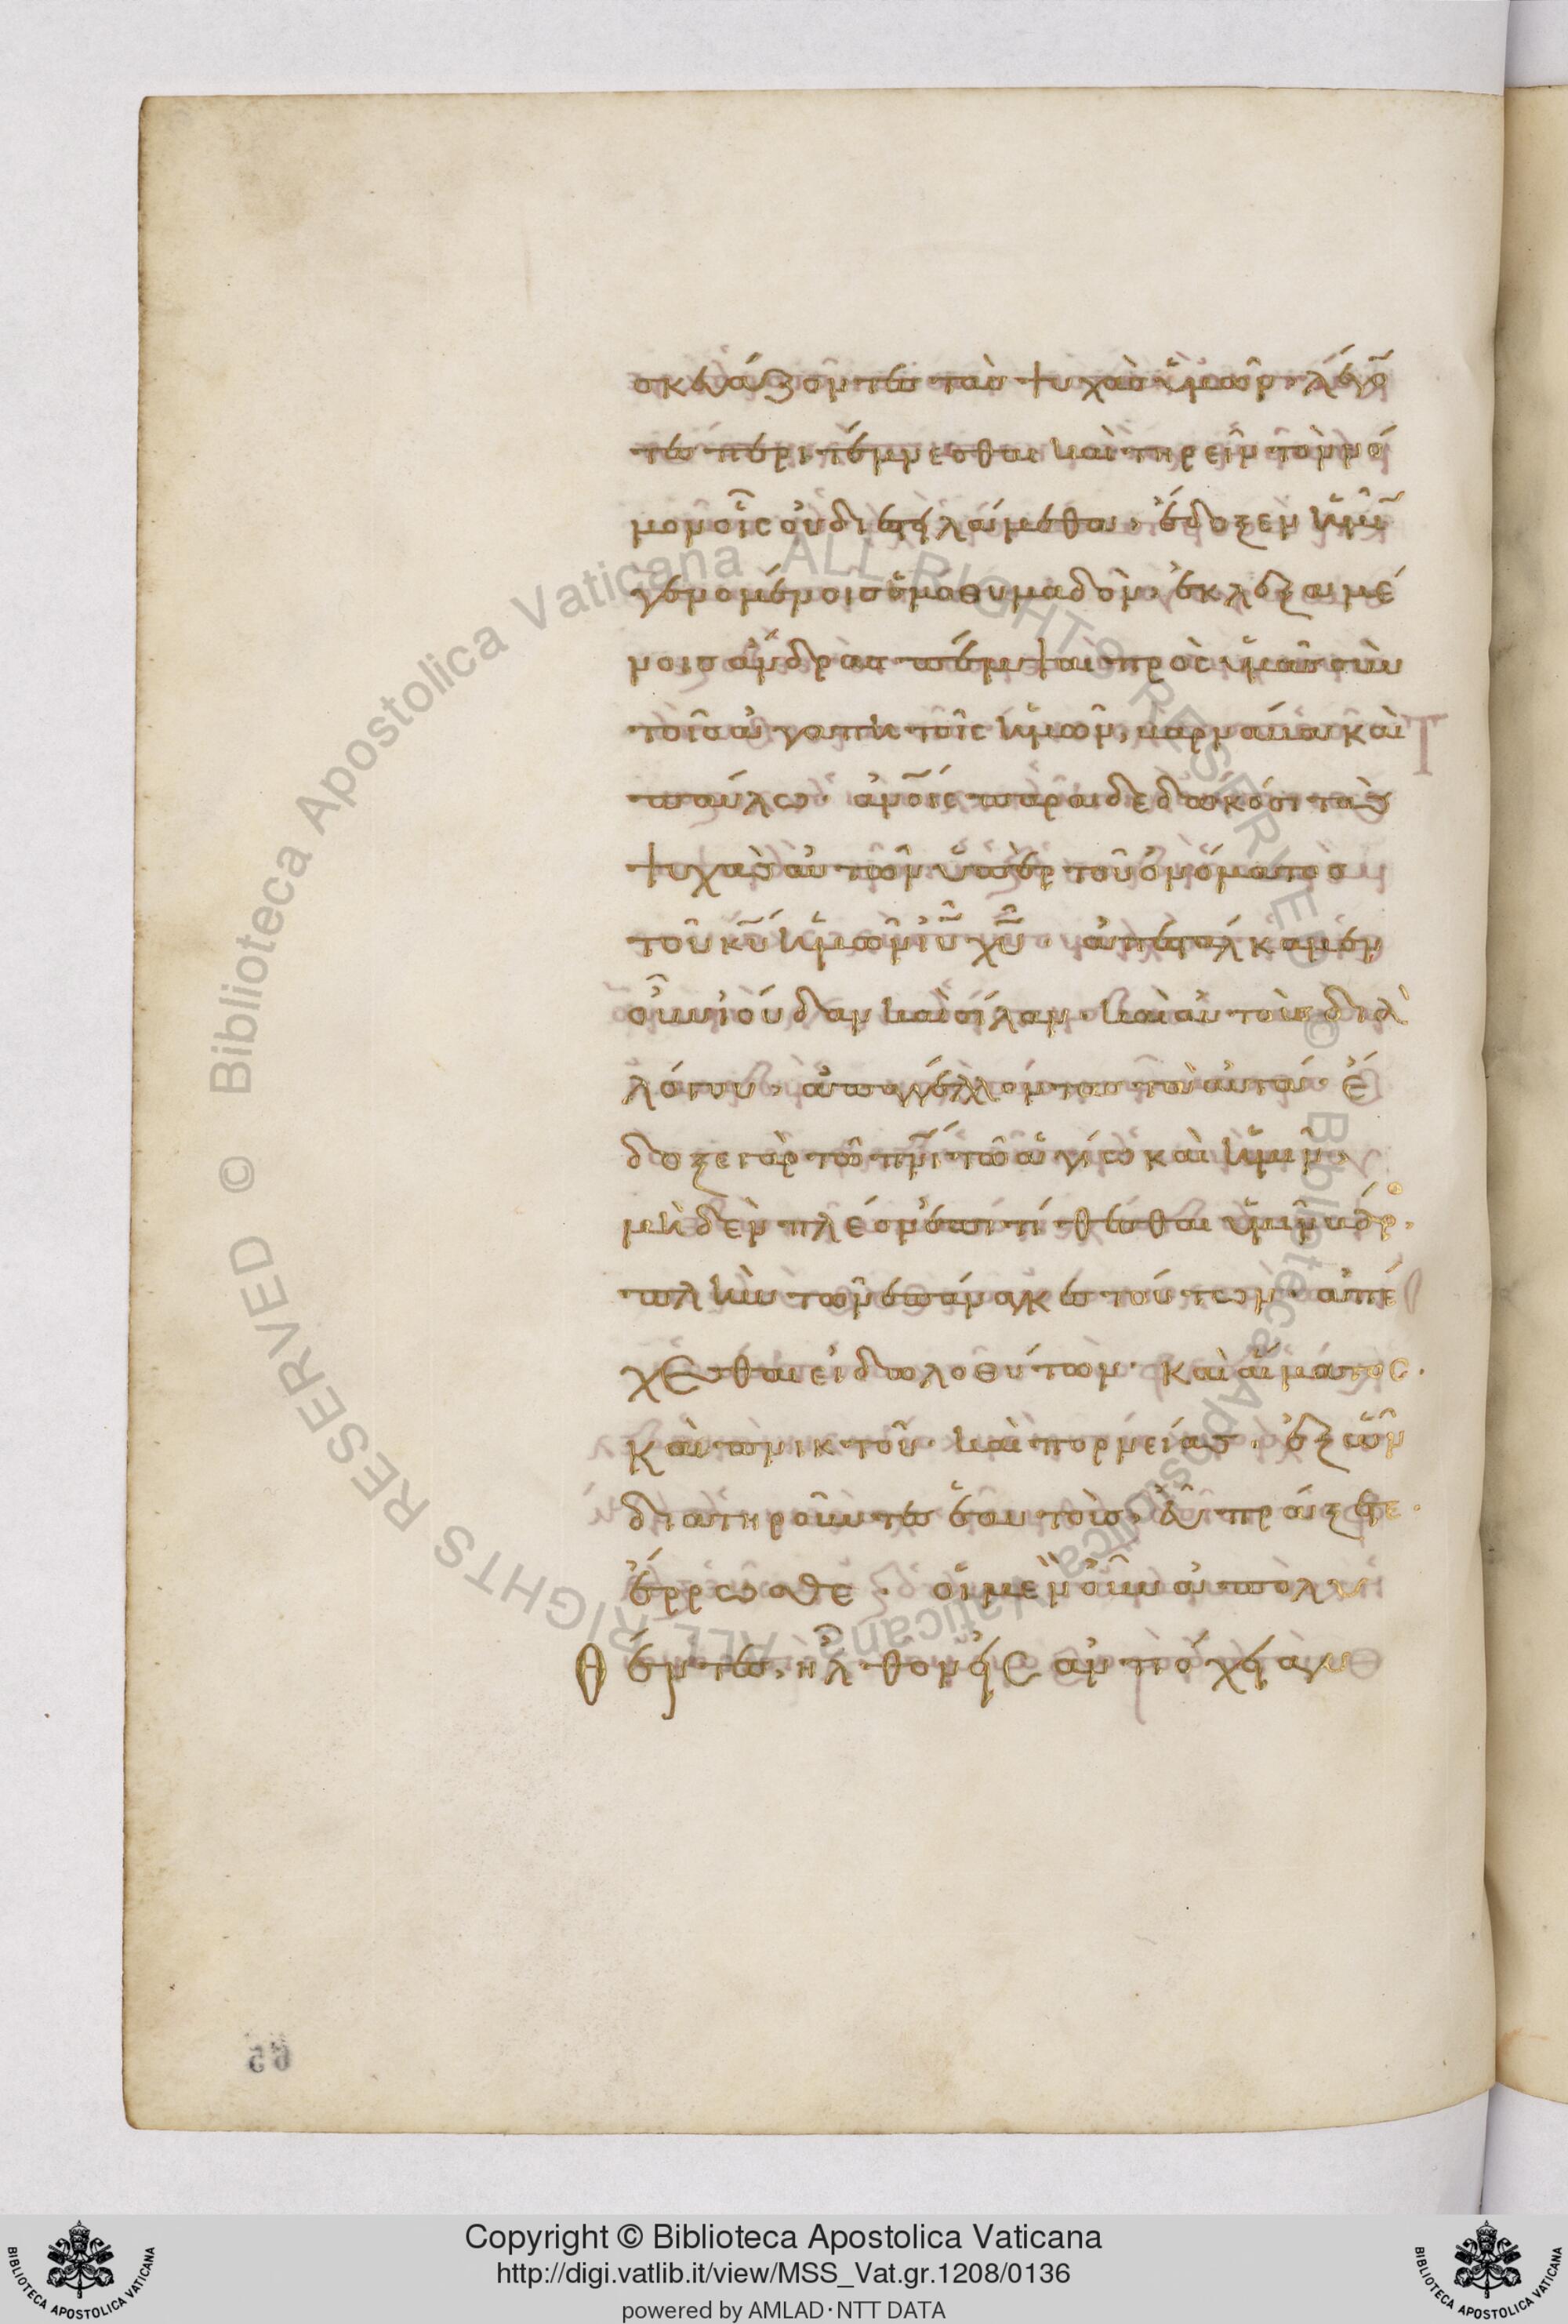 σκευάζοντες τὰς ψυχὰς ὑμῶν· λέγο̃
τες περιτέμνεσθαι καὶ τηρεῖν τὸν νό
μον οἷς οὐ διεστειλάμεθα· ἔδοξεν ἡμῖν
γενομένοις ὁμοθυμαδὸν· ἐκλεξαμέ
νοις ἄνδρας πέμψαι πρὸς ὑμᾶς σὺν
τοῖς ἀγαπητοῖς ἡμῶν, βαρνάβα καὶ
παύλω· ἀνο̃ις παραδεδωκόσι τὰς
ψυχὰς αὐτῶν ὑπὲρ τοῦ ὀνόματος
τοῦ κυ̃ ἡμῶν ἰυ̃ χυ̃· ἀπεστάλκαμεν
οὖν ἰούδαν καὶ σίλαν· καὶ αὐτοὺς διὰ
λόγου· ἀπαγγέλλοντας τὰ αὐτά· ἔ
δοξε γὰρ τῶ πνι̃ τῶ ἁγίω καὶ ἡμῖν·
μηδὲν πλέον ἐπιτίθεσθαι ὑμῖν βάρ·
πλὴν τῶν ἐπάναγκες τούτων· ἀπέ
χεσθαι εἰδωλοθύτων· καὶ αἵματος·
καὶ πνικτοῦ· καὶ πορνείας· ἐξ ὧν
διατηροῦντες ἑαυτοὺς, εὖ πράξετε·
ἔρρωσθε· οἱ μὲν οὖν ἀπολυ
θέντες, ἦλθον εἰς ἀντιόχειαν
65
© Biblioteca Apostolica Vaticana ALL RIGHTS RESERVED © Biblioteca Apostolica Vaticana ALL RIGHTS RESERVED
Copyright © Biblioteca Apostolica Vaticana
http://digi.vatlib.it/view/MSS_Vat.gr.1208/0136
powered by AMLAD·NTT DATA
BIBLIOTECA APOSTOLICA VATICANA
BIBLIOTECA APOSTOLICA VATICANA